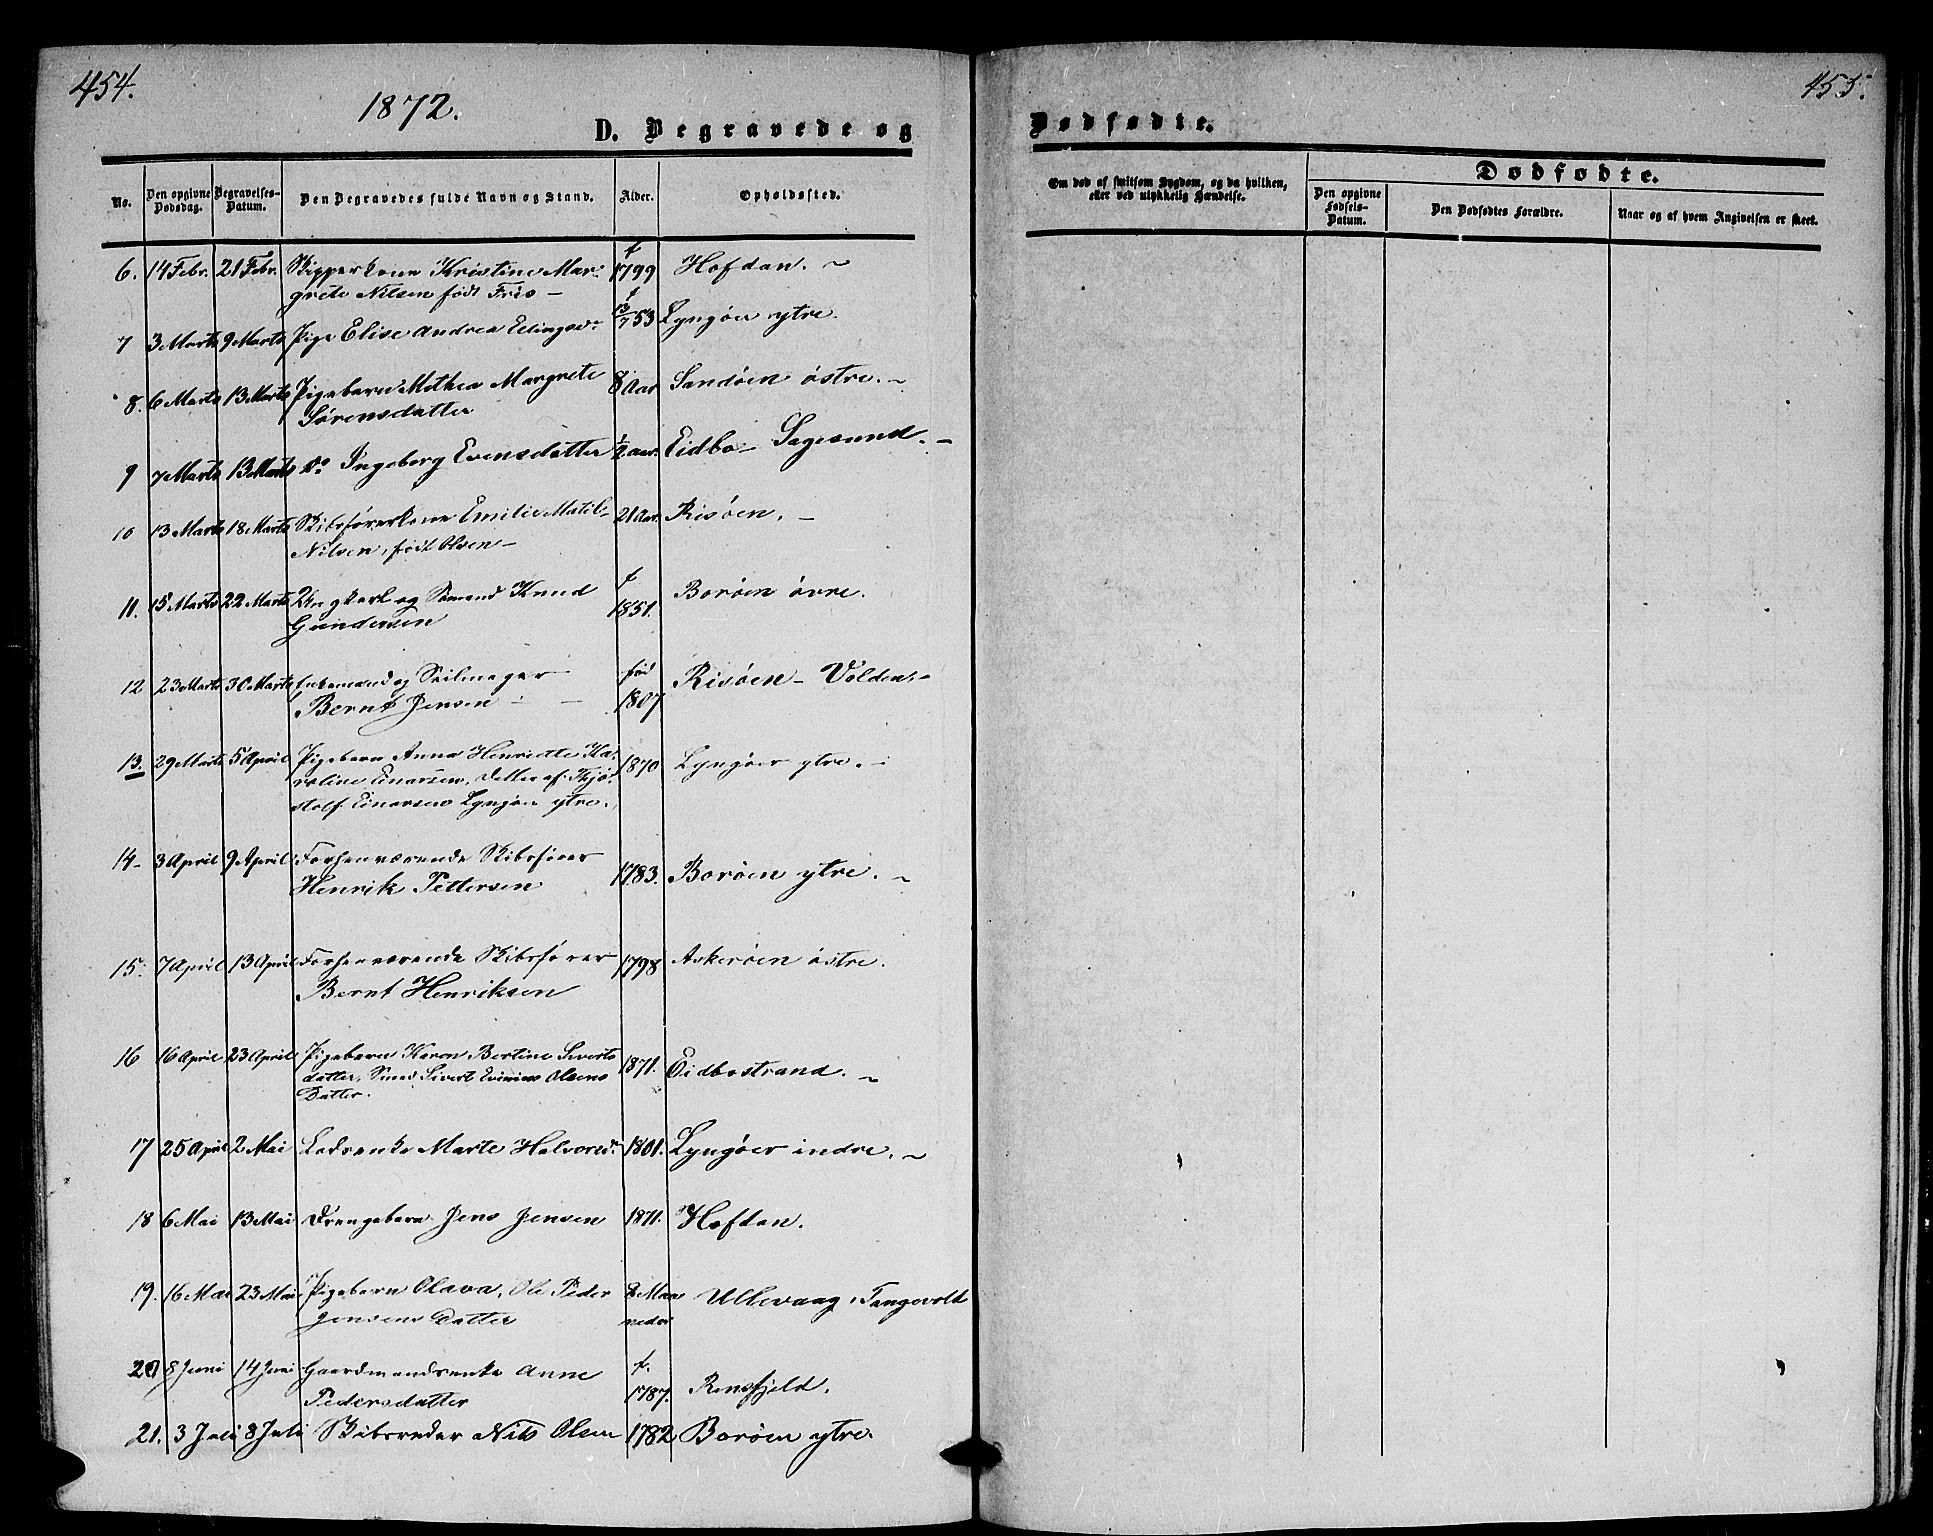 454.
1872.
D. Begravede og
No.
Den opgivne Dødsdag.
Begravelses-Datum.
Den Begravedes fulde Navn og Stand.
Alder.
Opholdssted.
6. 14 Febr. 21 Febr. Skipperkone Kristine Mar- f 1799 Hofdan.
grete Nilsen født Friis
7 3 Marts 9 Marts Pige Elise Andrea Ellingsd. f 13/7 53 Lyngøer ytre.
8. 6 Marts 13 Marts Pigebarn Mathea Margrete 8 Aar Sandøen østre.
Sørensdatter
9 7 Marts 13 Marts Do Ingeborg Evensdatter 1/2 aar. Eidbo - Sagesund.
10 13 Marts 18 Marts Skibsførerkone Emilie Matil- 21 Aar. Risøen.
Nilsen, født Olsen
11. 15 Marts 22 Marts Ungkarl og Sømand Knud f 1851. Borøen øvre.
Gundersen
12 23 Marts 30 Marts Enkemand og Seilmager fød 1807 Risøen - Volden.
Bernt Jensen
13. 29 Marts 5 April Pigebarn Anna Henriette Ka- 1870 Lyngøer ytre.
roline Einarsen, Datter af Thjø-
stolf Einarsen Lyngøer ytre.
14 3 April 9 April Forhenværende Skibsfører 1783. Borøen ytre.
Henrik Pettersen
15. 7 April 13 April Forhenværende Skibsfører 1798 Askerøen østre.
Bernt Henriksen
16 16 April 23 April Pigebarn Karen Bertine Siverts 1871. Eidbostrand.
datter, Smed Sivert Olsens
Datter.
17 25 April 2 Mai Lodsenke Marte Halvorsd. 1801. Lyngøer indre.
18 6 Mai 13 Mai Drengebarn Jens Jensen 1871. Hofdan.
19. 16 Mai 23 Mai Pigebarn Olava, Ole Peder 2 Maa Ullevaag, Tangevold
Jensens Datter neder
20 8 Juni 14 Juni Gaardmandsenke Anne f. 1787. Rensfjeld.
Pedersdatter
21. 3 Juli 8 Juli Skibsreder Nils Olsen 1782 Borøen ytre.
455.
Dødfødte.
Om død af smitsom Sygdom, og da hvilken,
eller ved ulykkelig Hændelse.
Dødfødte.
Den opgivne Fødsels-Datum.
Den Dødfødtes Forældre.
Naar og af hvem Angivelsen er skeet.